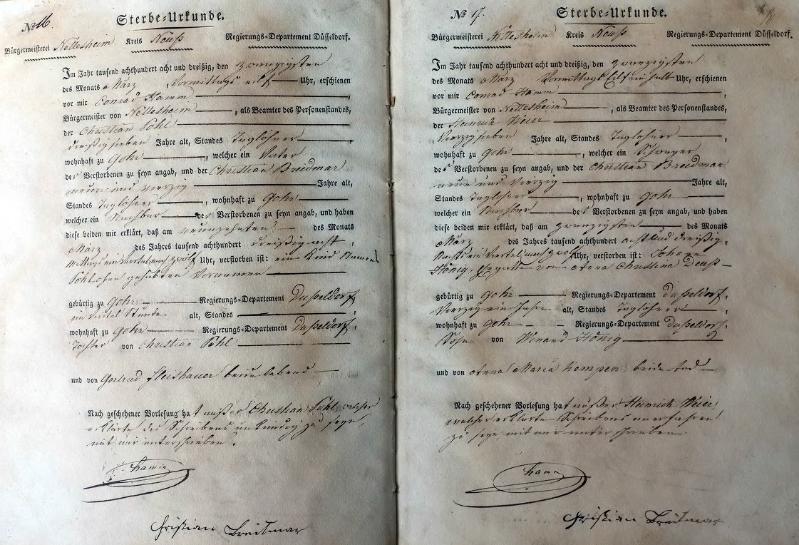 No 16.
Sterbe-Urkunde.
Bürgermeisterei Nettesheim Kreis Neuß Regierungs-Departement Düsseldorf.
Im Jahr tausend achthundert acht und dreißig, den zwanzigsten
des Monats März Vormittags elf Uhr, erschienen
vor mir Conrad Hamm
Bürgermeister von Nettesheim, als Beamter des Personenstandes,
der Christian Pohl
dreißig sieben Jahre alt, Standes Taglohner
wohnhaft zu Gohr, welcher ein Vater
der Verstorbenen zu seyn angab, und der Christian Breidmar
neun und vierzig Jahre alt,
Standes Taglohner, wohnhaft zu Gohr
welcher ein Nachbar der Verstorbenen zu seyn angab, und haben
diese beiden mir erklärt, daß am neunzehnten des Monats
März des Jahres tausend achthundert dreißig acht,
Mittags ein viertel nach zwölf Uhr, verstorben ist: ein Kind Namens
Pohl ohne gegebenen Vornamen
gebürtig zu Gohr Regierungs-Departement Dusseldorf,
ein viertel Stunde alt, Standes
wohnhaft zu Gohr Regierungs-Departement Dusseldorf,
Tochter von Christian Pohl
und von Gertrud Fleishauer beide lebend
Nach geschehener Vorlesung hat außer Christian Pohl welcher
erklärte des Schreibens unkundig zu seye
mit mir unterschrieben.
Hamm
Christian Breitmar
No 17.
Sterbe-Urkunde.
Bürgermeisterei Nettesheim Kreis Neuß Regierungs-Departement Düsseldorf.
Im Jahr tausend achthundert acht und dreißig, den zwanzigsten
des Monats März Vormittags Elf ein halb Uhr, erschienen
vor mir Conrad Hamm
Bürgermeister von Nettesheim, als Beamter des Personenstandes,
der Heinrich Meier
Vierzig sieben Jahre alt, Standes Taglohner
wohnhaft zu Gohr, welcher ein Schwager
des Verstorbenen zu seyn angab, und der Christian Breidmar
neun und vierzig Jahre alt,
Standes Taglohner, wohnhaft zu Gohr
welcher ein Nachbar des Verstorbenen zu seyn angab, und haben
diese beiden mir erklärt, daß am zwanzigsten des Monats
März des Jahres tausend achthundert acht und dreißig,
Nachts ein viertel nach zwei Uhr, verstorben ist: Johann
König, Gatte von Anna Christina
gebürtig zu Gohr Regierungs-Departement Dusseldorf,
Vierzig ein Jahre alt, Standes Taglohner
wohnhaft zu Gohr Regierungs-Departement Dusseldorf
Sohn von Winand König
und von Anna Maria Kompen beide tod
Nach geschehener Vorlesung hat außer Heinrich Meier
welcher erklärte Schreibens unerfahren
zu seye mit mir unterschrieben.
Hamm
Christian Breitmar